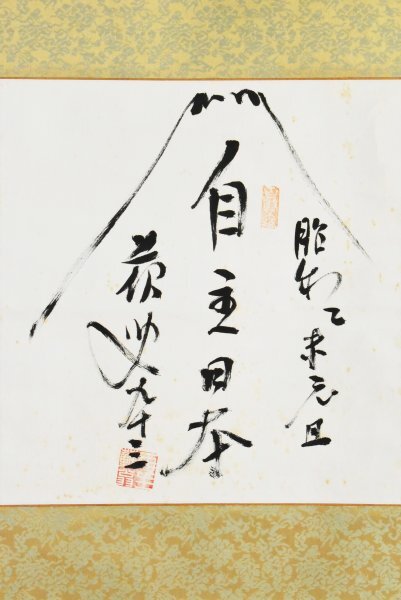 昭和乙未元旦
自主日本
蘇叟九十三